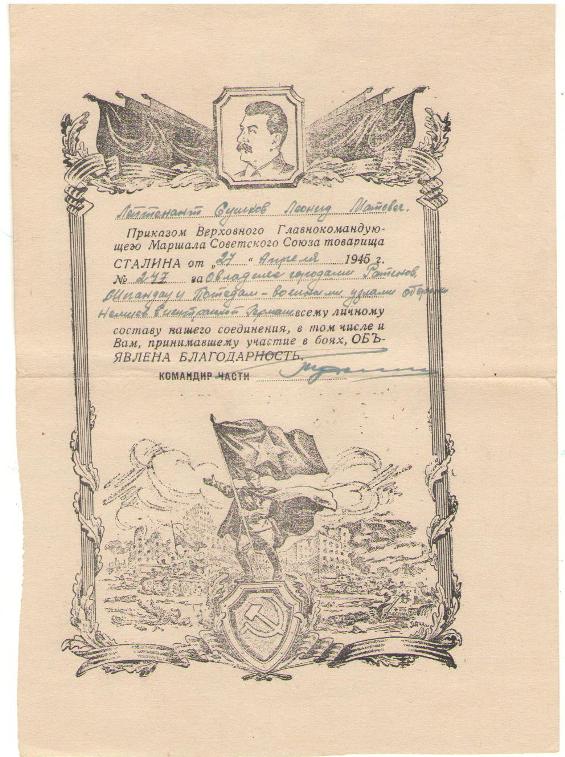 Лейтенант Сушков Леонид Матвеев.
Приказом Верховного Главнокомандую-
щего Маршала Советского Союза товарища
СТАЛИНА от „27“ апреля 1945 г.
№ 347 за овладение городами Ратенов,
Шпандау и Потсдам – важными узлами обороны
Немцев в центральной Германии всему личному
составу нашего соединения, в том числе и
Вам, принимавшему участие в боях, ОБЪ-
ЯВЛЕНА БЛАГОДАРНОСТЬ.
КОМАНДИР ЧАСТИ